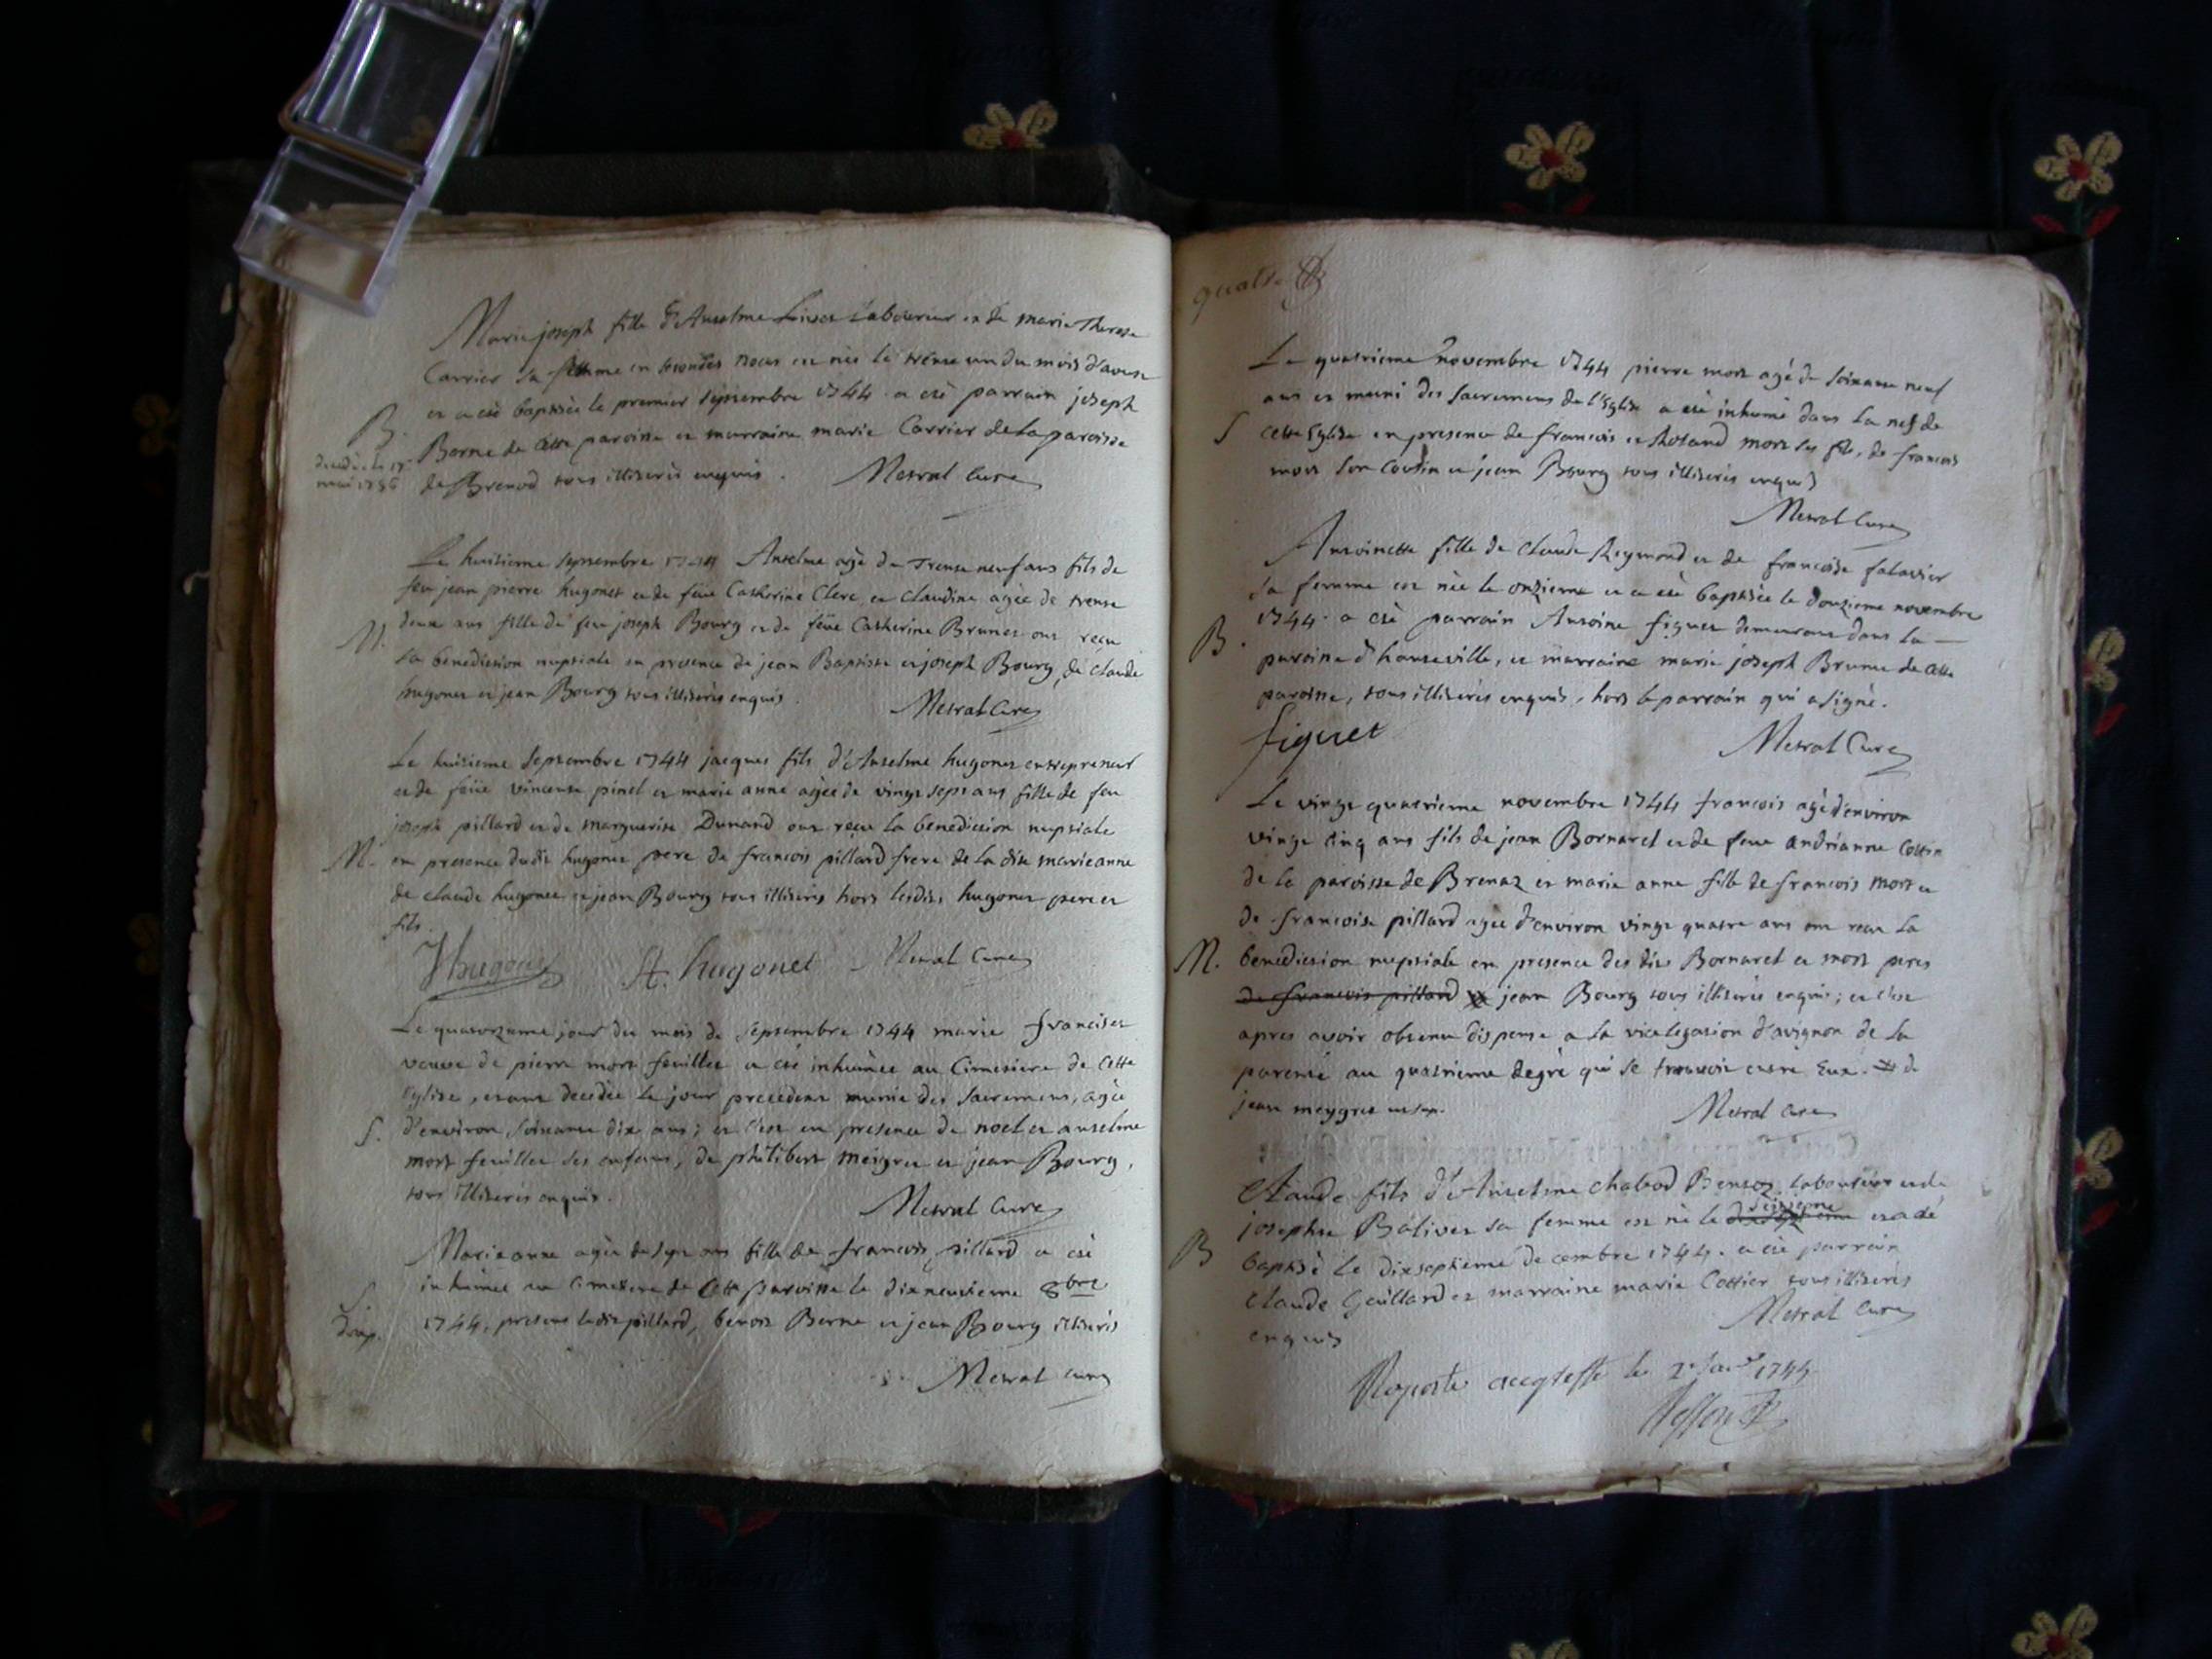 Marie joseph fille d'Anselme Livet Laboureur et de marie Therese
Carrier sa femme en secondes noces est née le trente un du mois d'aoust
et a eté baptisée le premier septembre 1744. a eté parrain joseph
B.
Borne de cette paroisse et marraine marie Carrier de la paroisse
decedée le 17
mai 1786
de Brenod tous illiterés enquis. Metral Curé
Le huitieme septembre 1744 Anselme agé de Trente neuf ans fils de
feu jean pierre hugonet et de feüe Catherine Clerc, et claudine agée de trente
deux ans fille de feu joseph Bourg et de feüe Catherine Brunet ont reçu
M.
la benediction nuptiale en presence de jean Baptiste et joseph Bourg, de claude
hugonet et jean Bourg tous illiterés enquis. Metral Curé
Le huitieme septembre 1744 jacques fils d'Anselme hugonet entrepreneur
et de feüe vincente pinet et marie anne agée de vingt sept ans fille de feu
joseph pillard et de marguerite Dunand ont reçu la benediction nuptiale
M. en presence dudit hugonet pere de francois pillard frere de la dite marieanne
de claude hugonet et jean Bourg tous illiterés hors lesdits hugonet pere et
fils.
J hugonet A. hugonet Metral Curé
Le quatorzieme jour du mois de septembre 1744 marie franciset
veuve de pierre mort feuillet a eté inhumée au Cimetiere de cette
Eglise, etant decedée le jour precedent munie des sacremens, agée
S. d'environ soixante dix ans; et c'est en presence de noel et anselme
mort feuillet ses enfans, de philibert meigret et jean Bourg,
tous illiterés enquis.
Metral Curé
Marie anne agée de sept ans fille de francois pillard a eté
S
inhumée au cimetiere de cette paroisse le dixneuvieme 8bre
1744. presens ledit pillard, benoit Borne et jean Bourg illiterés
Metral Curé
quatre
Le quatrieme novembre 1744 pierre mort agé de soixante neuf
ans et muni des sacremens de l'Eglise a eté inhumé dans la nef de
S cette Eglise en presence de francois et Roland mort ses fils, de francois
mort son cousin et jean Bourg tous illiterés enquis
Metral Curé
Antoinette fille de claude Reymond et de francoise falavier
sa femme est née le onzieme et a eté baptisée le douzieme novembre
1744. a eté parrain Antoine figuet demeurant dans la
B.
paroisse d'hauteville, et marraine marie joseph Brunet de cette
paroisse, tous illiterés enquis, hors le parrain qui a signé.
figuet Metral Curé
Le vingt quatrieme novembre 1744 francois agé d'environ
vingt cinq ans fils de jean Bornaret et de feue andrianne Cottin
de la paroisse de Brenaz et marie anne fille de francois mort et
de francoise pillard agée d'environ vingt quatre ans ont reçu la
M. benediction nuptiale en presence des dits Bornaret et mort peres
de francois pillard jean Bourg tous illiterés enquis; et c'est
apres avoir obtenu dispense a la vicelegation d'avignon de la
parenté au quatrieme degré qui se trouvoit entre Eux. # de
jean meygret
Metral Curé
Claude fils d'Anselme chabod Benson laboureur et de
seizieme
josephte Balivet sa femme est né le et a eté
B
baptisé le dixseptieme decembre 1744. a eté parrain
claude Gaillard et marraine marie Cottier tous illiterés
enquis
Metral Curé